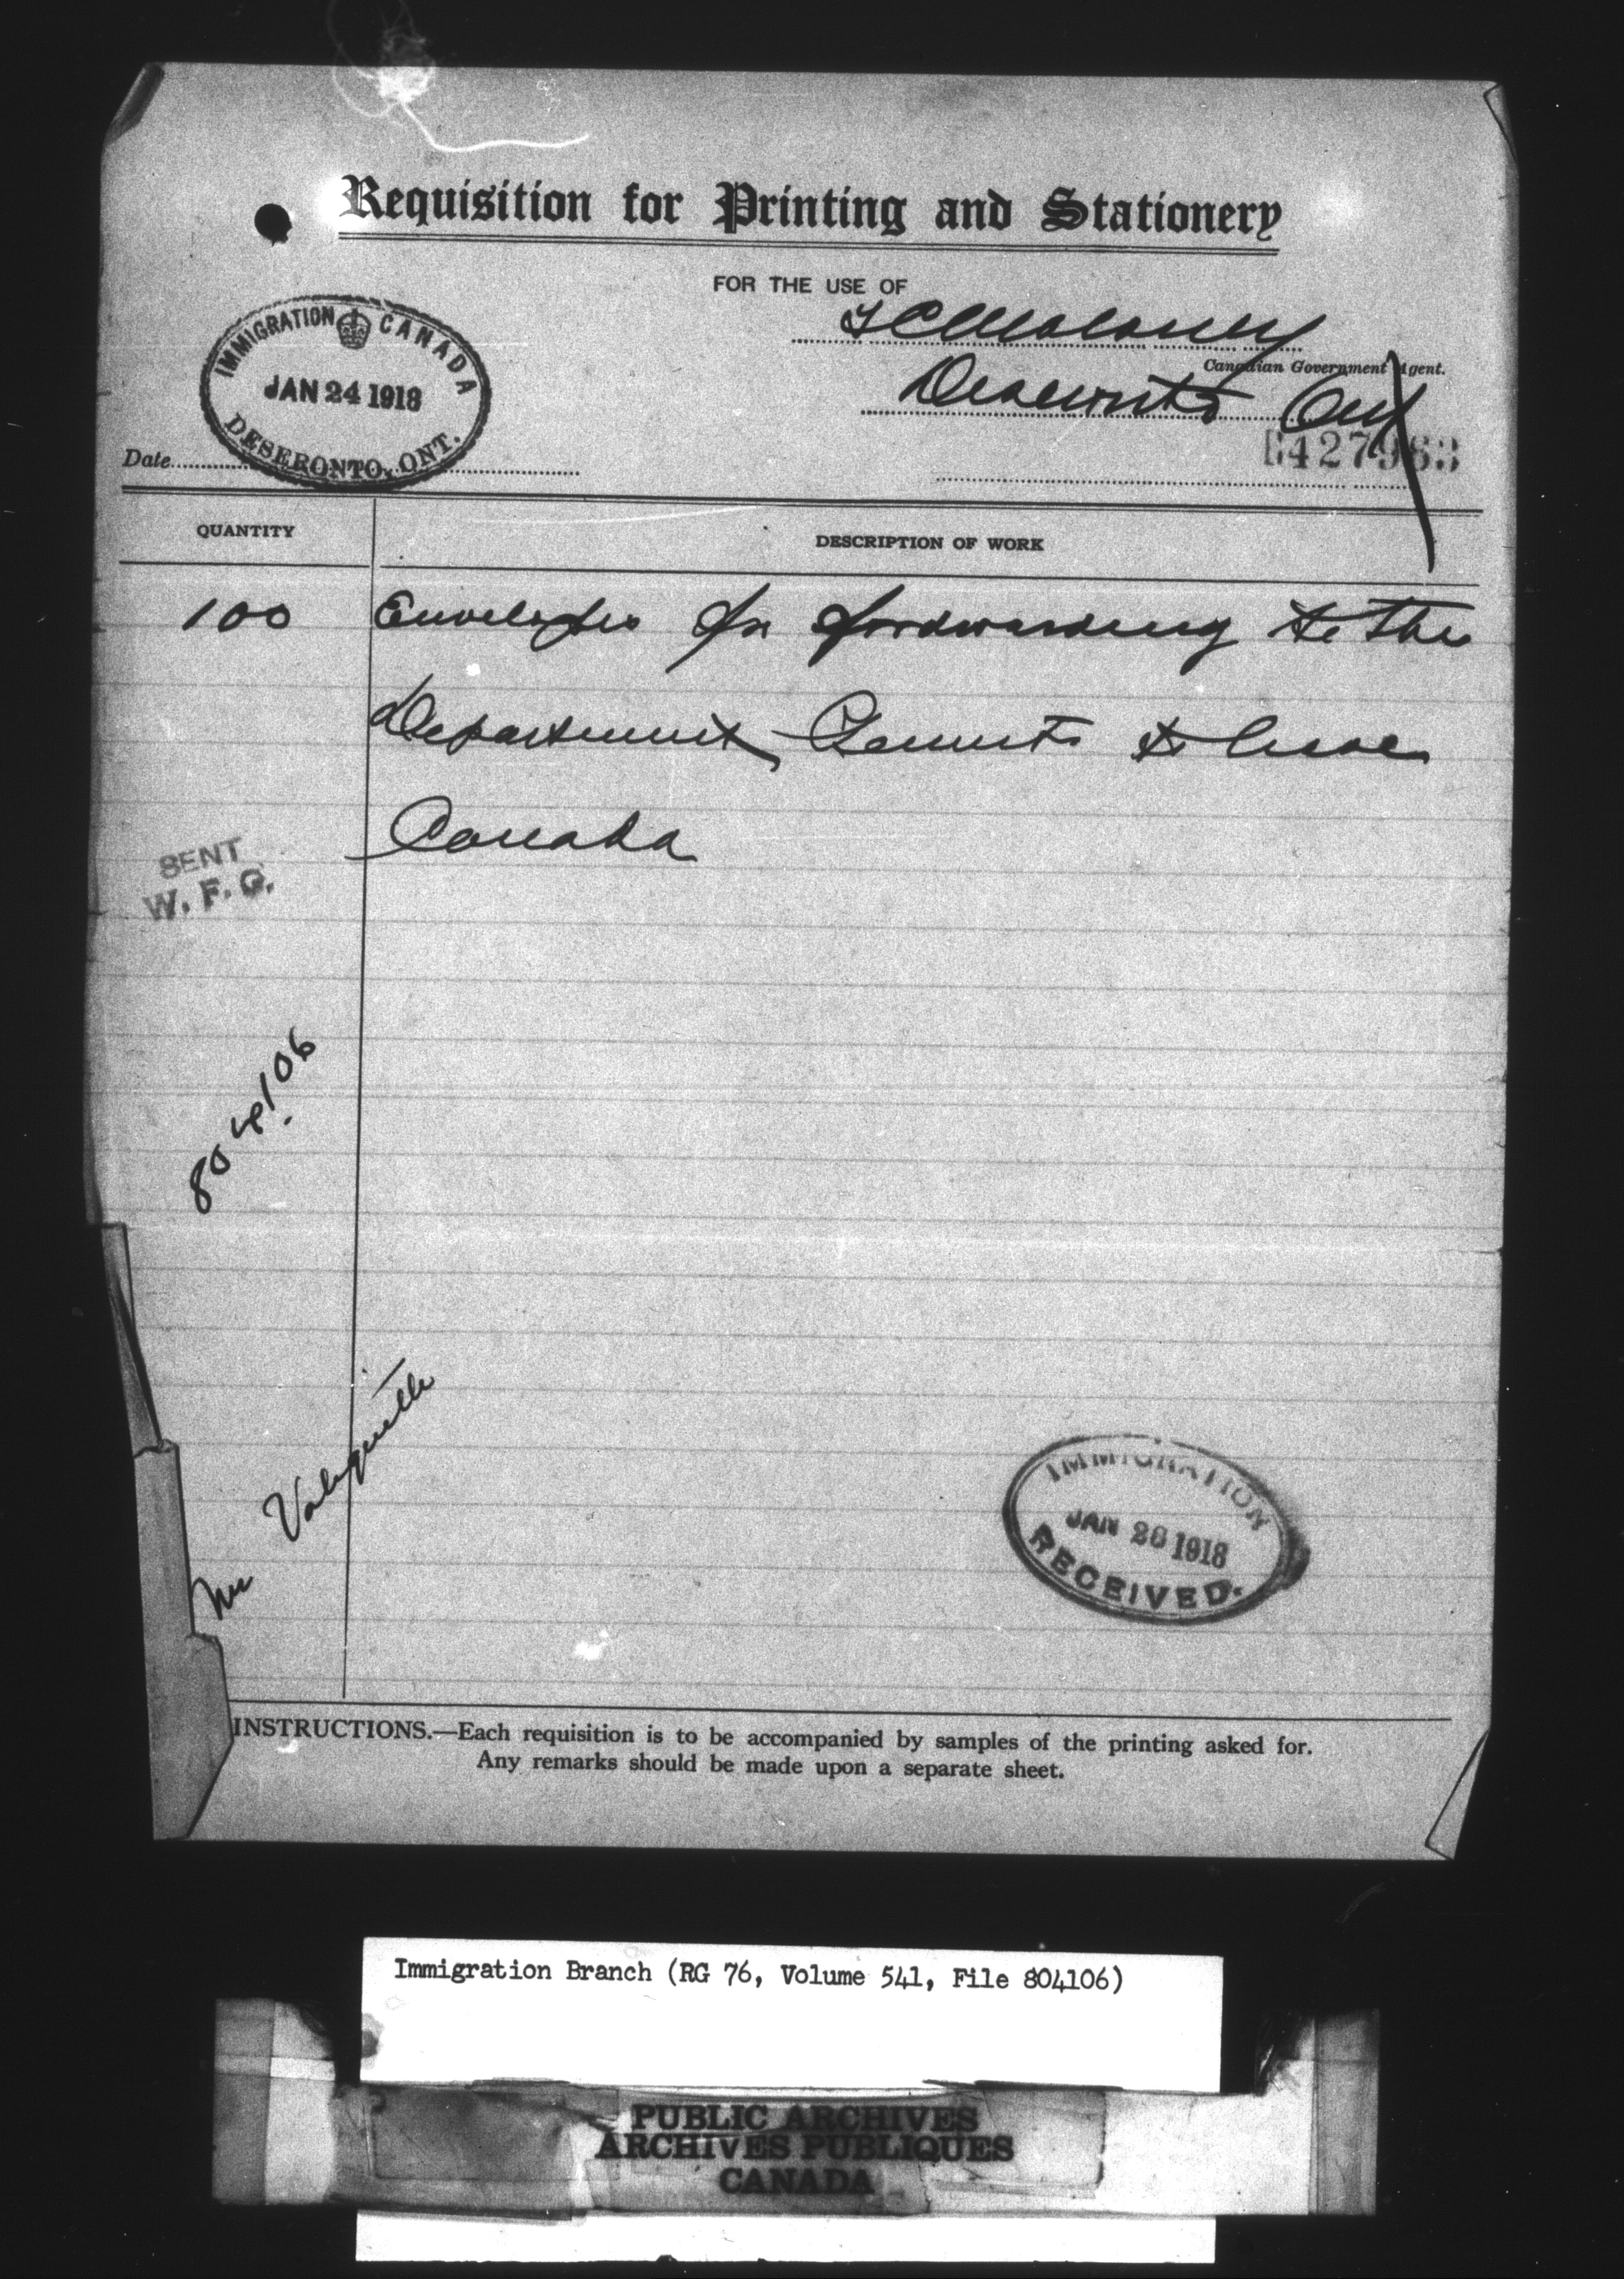 Requisition for Printing and Stationery
FOR THE USE OF
Canadian Government Agent.
Deseronto Ont
IMMIGRATION CANADA
JAN 24 1918
DESERONTO, ONT.
Date
QUANTITY
DESCRIPTION OF WORK
100 Envelopes for forwarding to the
Department, Permits to leave
Canada
SENT
W. F. G.
804106
Mr Valiquette
IMMIGRATION
JAN 26 1918
RECEIVED.
INSTRUCTIONS.—Each requisition is to be accompanied by samples of the printing asked for.
Any remarks should be made upon a separate sheet.
Immigration Branch (RG 76, Volume 541, File 804106)
PUBLIC ARCHIVES
ARCHIVES PUBLIQUES
CANADA